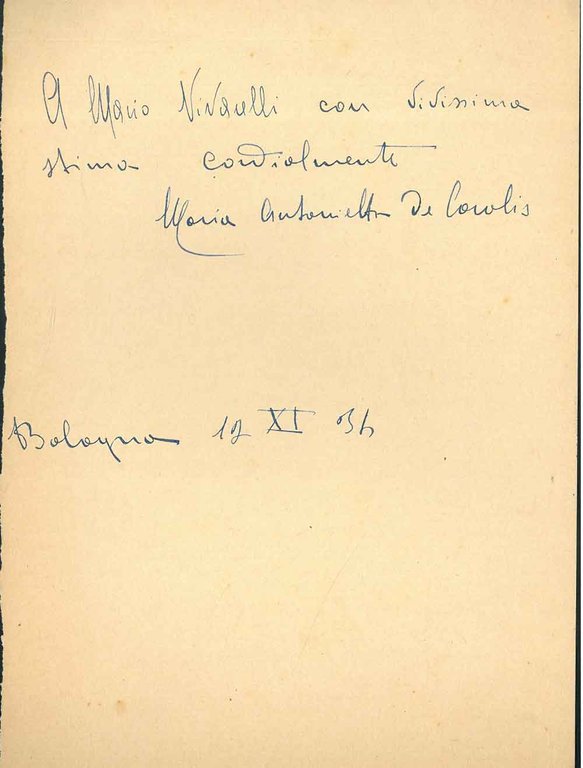 A Mario Vivarelli con vivissima
stima cordialmente
Maria Antonietta De Carolis
Bologna 12 XI